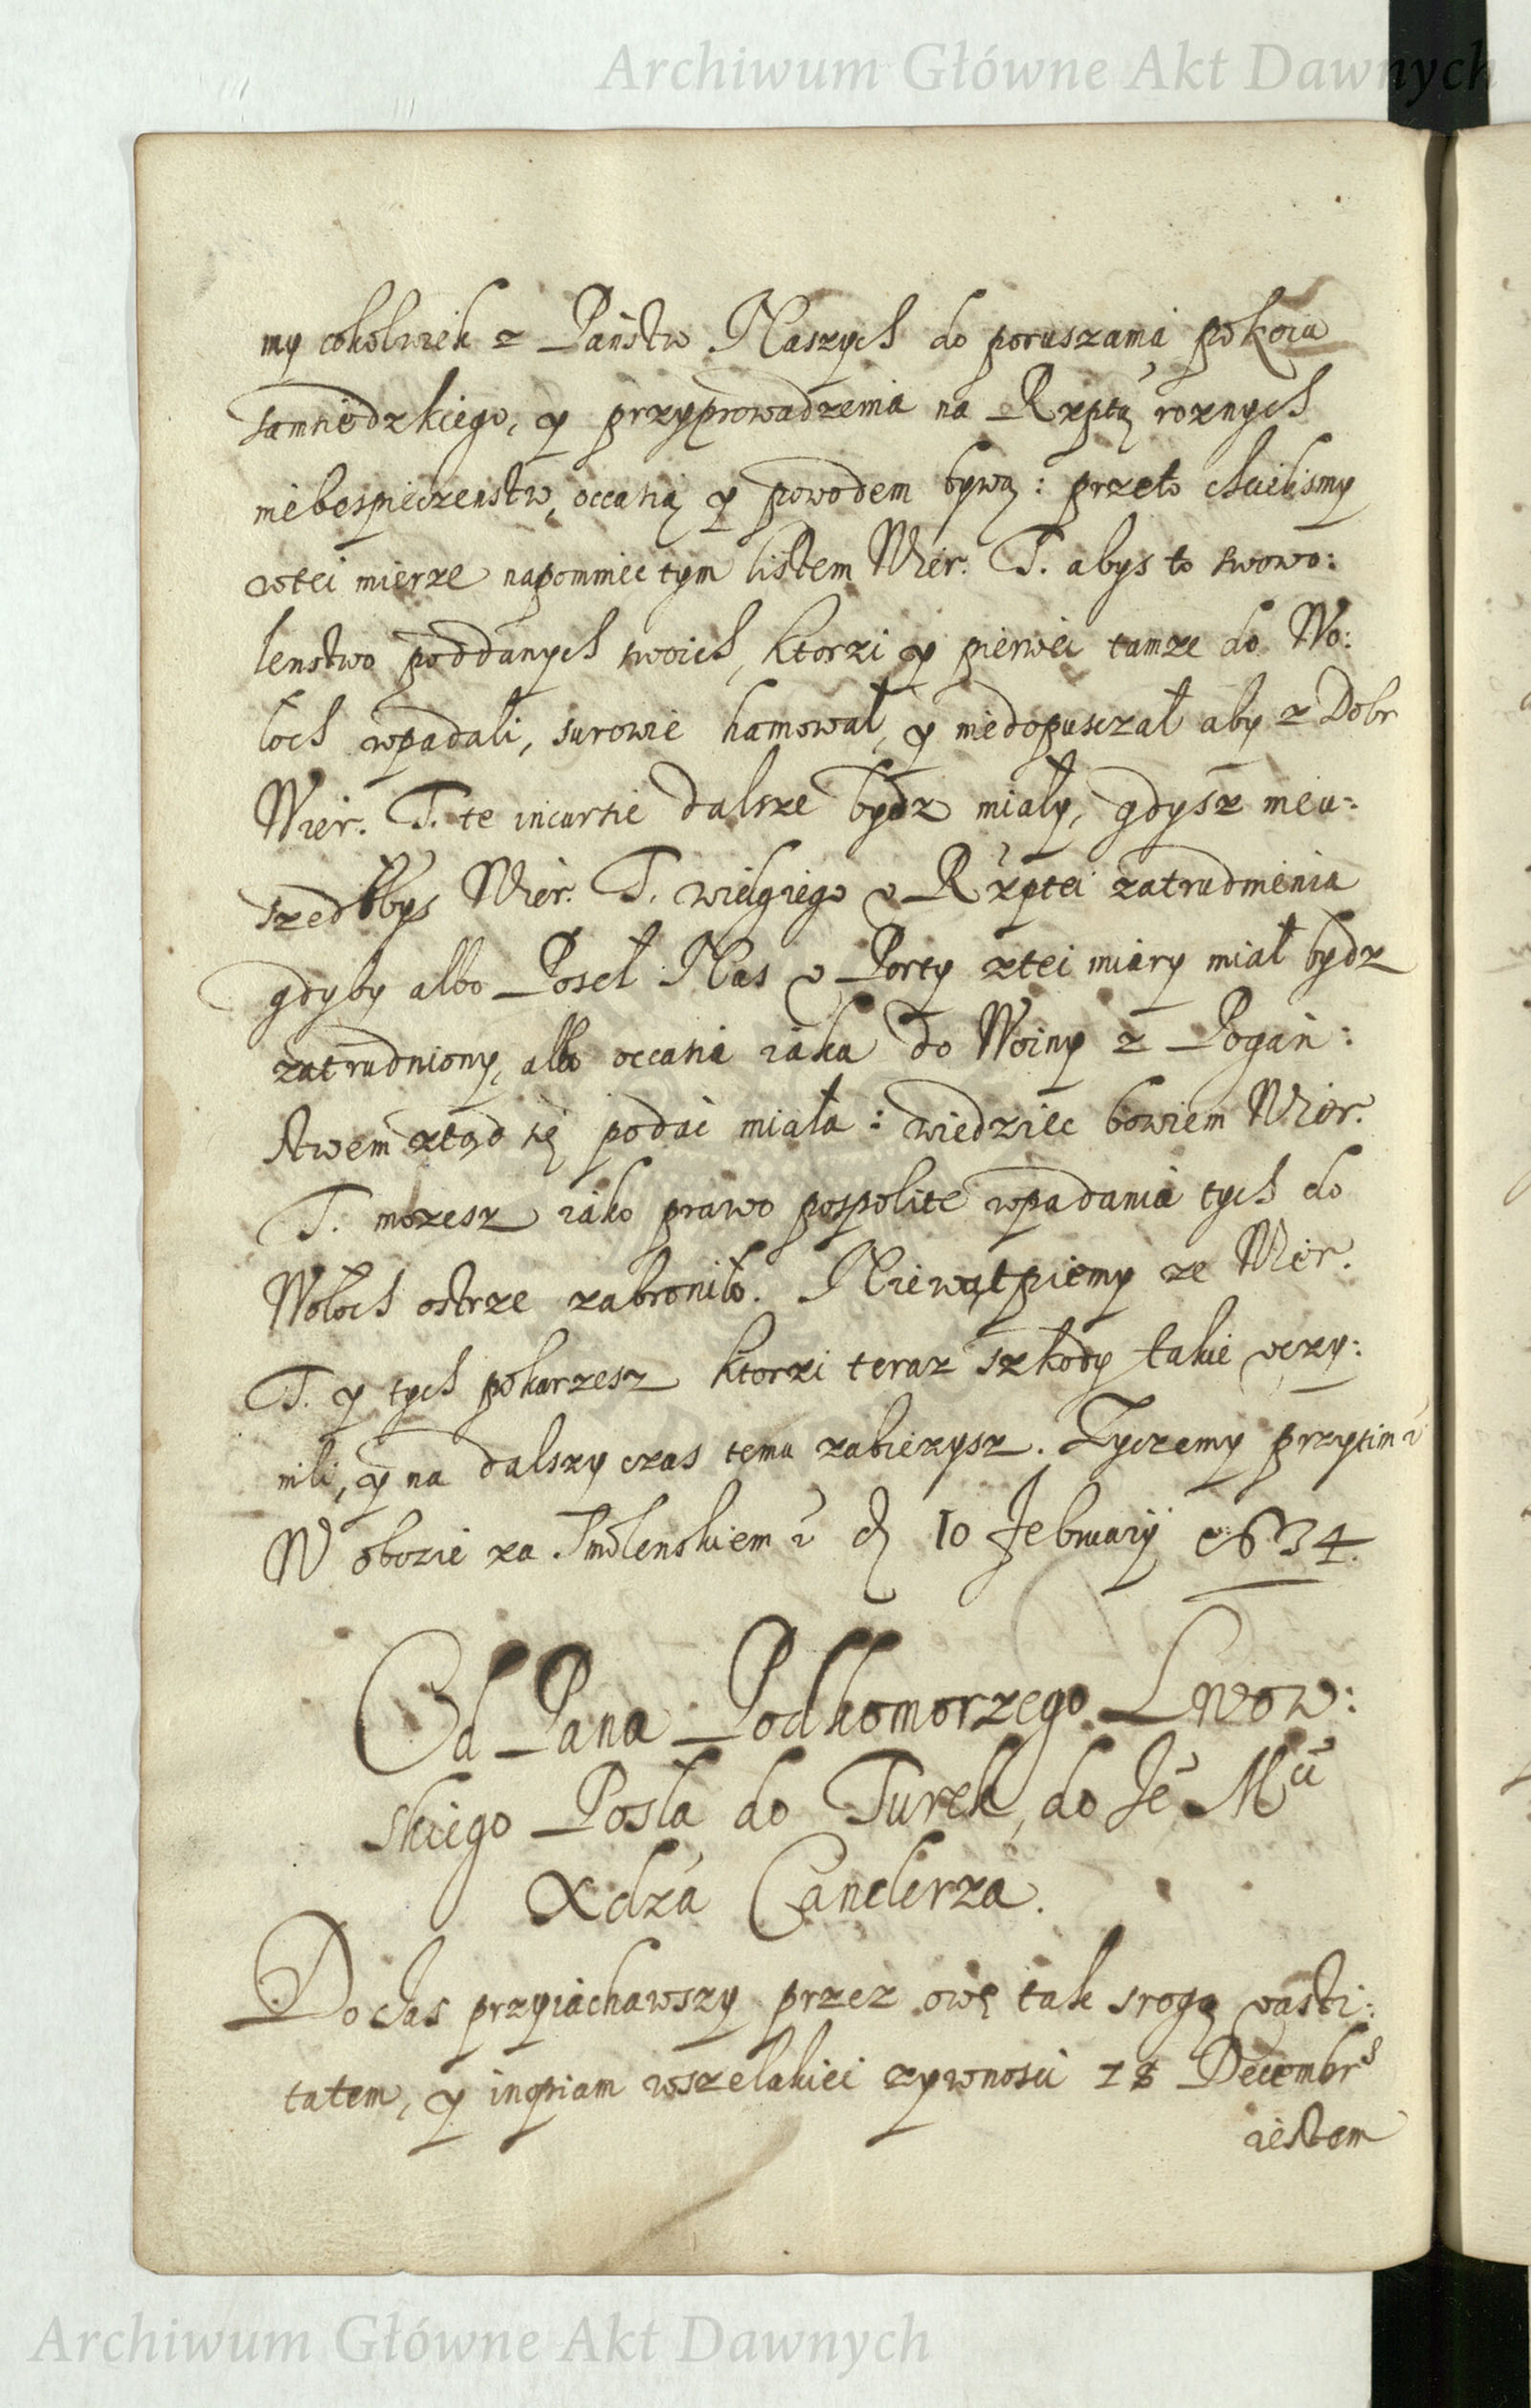 Archiwum Główne Akt Dawnych
my cokolwiek z Państw Naszych do poruszania pokoiu
samsiedzkiego, y przyprowadzenia na Rzptą roznych
niebespieczenstw, occasią y powodem bywa: przeto chcielismy
wtei mierze napomniec tym listem Wier. T. abys to swowo:
lenstwo poddanych swoich, ktorzi y pierwei tamze do Wo:
łoch wpadali, surowie hamował, y niedopusczał aby z Dobr
Wier. T. te incursie dalsze bydz miały, gdysz nieu:
szedłbys Wier. T. wielgiego v Rzptei zatrudnienia
gdyby albo Poseł Nas v Porty ztei miary miał bydz
zatrudniony, albo occasia iaka do Woiny z Pogań:
stwem ztąd się podać miała: wiedziec bowiem Wier.
T. mozesz iako prawo pospolite wpadania tych do
Wołoch ostrze zabroniło. Niewątpiemy ze Wier.
T. y tych pokarzesz ktorzi teraz szkody takie vczy:
nili, y na dalszy czas temu zabiezysz. Zyczemy przytim
W obozie za Smolenskiem d 10 Februarij 1634.
Od Pana Podkomorzego Lwow:
skiego Posła do Turek, do Je Mci
Xdza Canclerza.
Do Jas przyiachawszy przez owę tak srogą vasti:
tatem, y inopiam wszelakiei zywnosci 18 Decembrs
iestem
Archiwum Główne Akt Dawnych